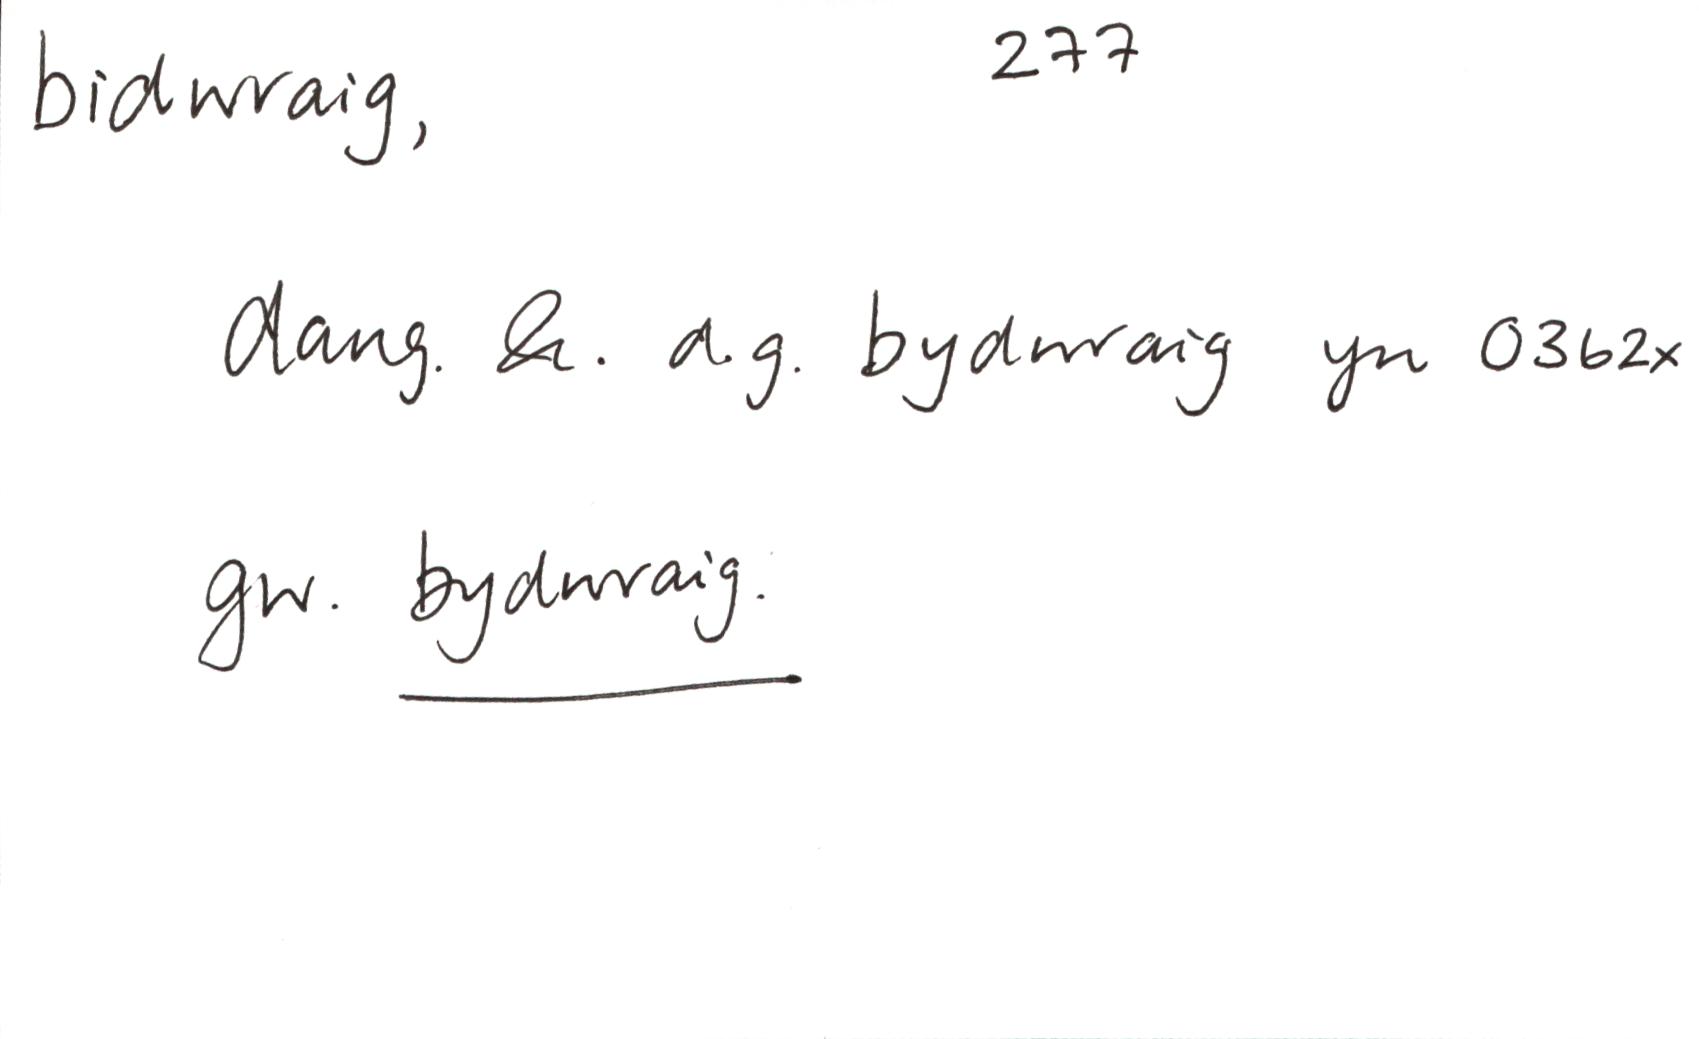 bidwraig, 277
dang. &. d.g. bydwraig yn 0362x
gw. bydwraig.